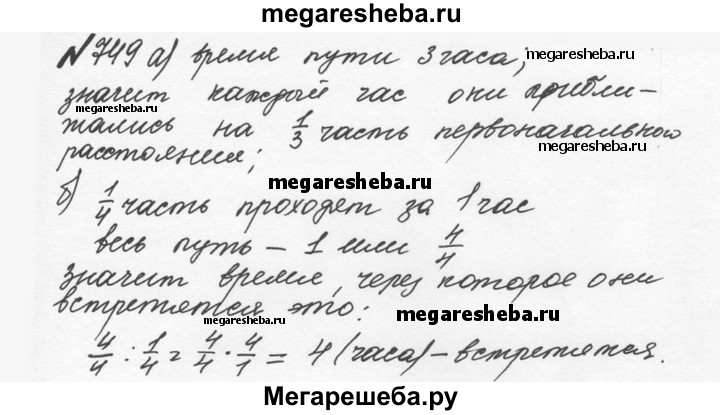 megaresheba.ru
№749 а) время пути 3 часа;
megaresheba.ru
значит каждый час они прибли-
megaresheba.ru
жались на 1/3 часть первоначального
megaresheba.ru
расстояния;
megaresheba.ru
б) 1/4 часть проходят за 1 час
весь путь – 1 или 4/4
значит время, через которое они
встретятся это:
megaresheba.ru
megaresheba.ru
4/4 : 1/4 = 4/4 · 4/1 = 4 (часа) – встретятся.
Мегарешеба.ру